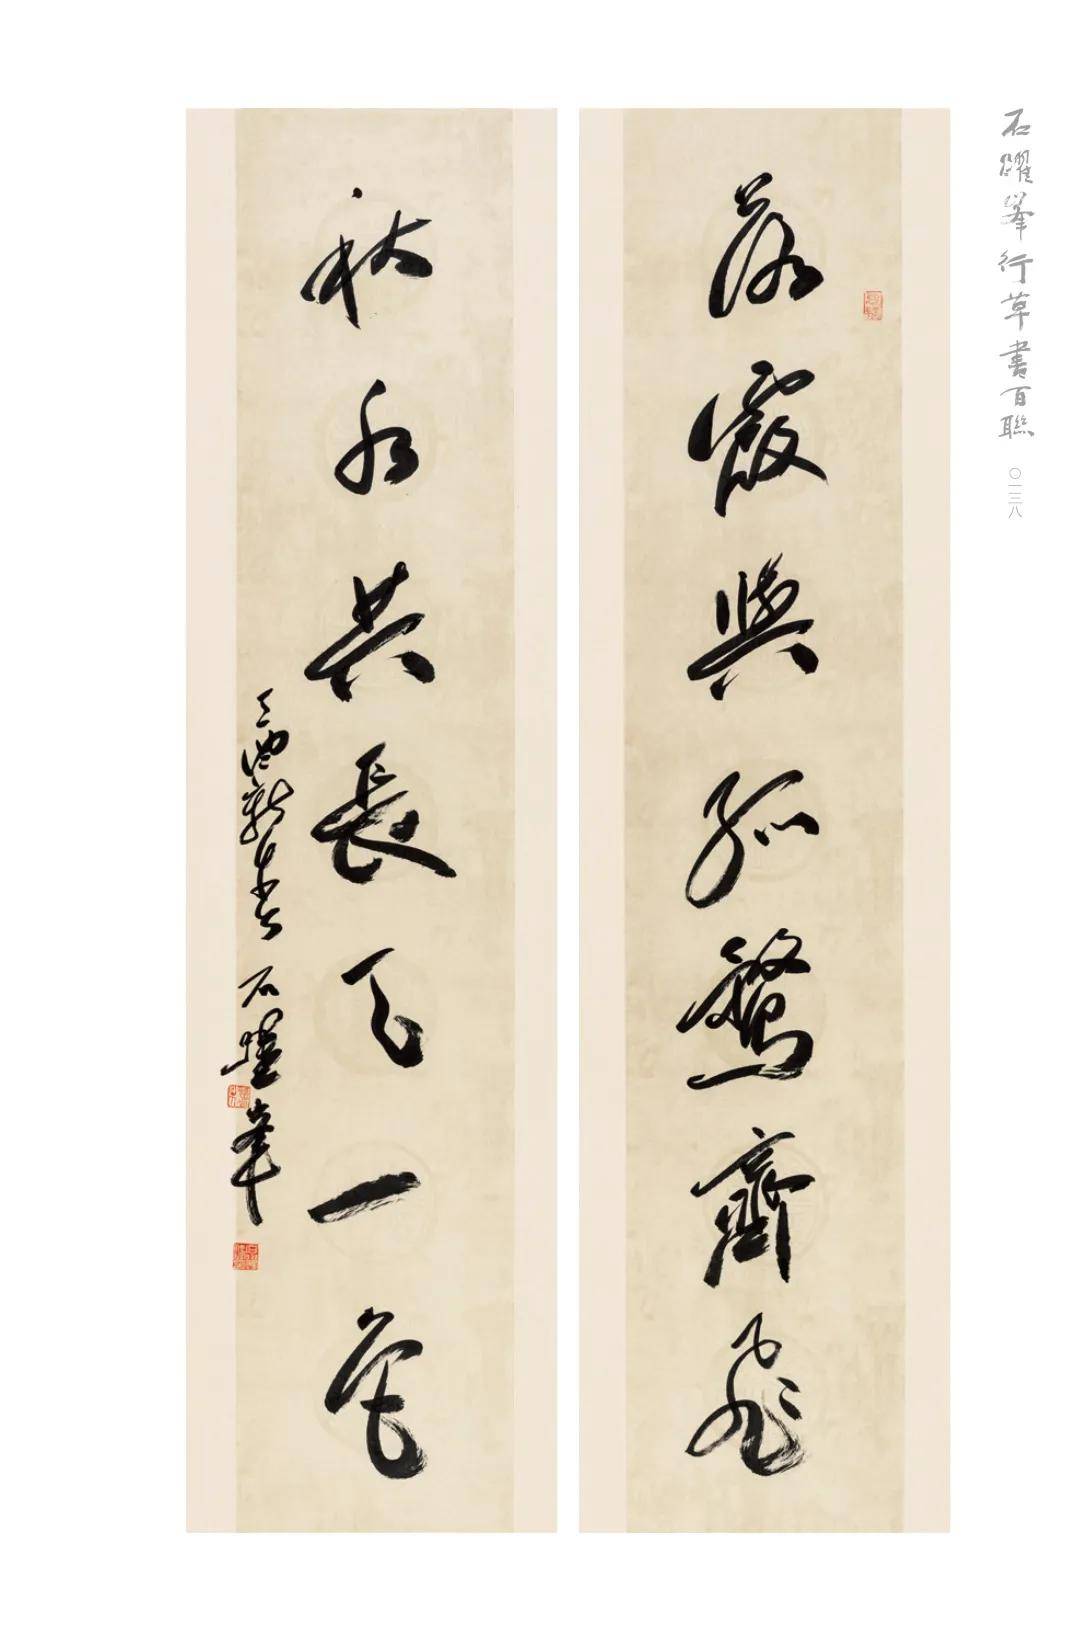 石躍峯行草書百聯
〇一三八
落霞與孤鶩齊飛
秋水共長天一色
丁酉新春書石躍峯